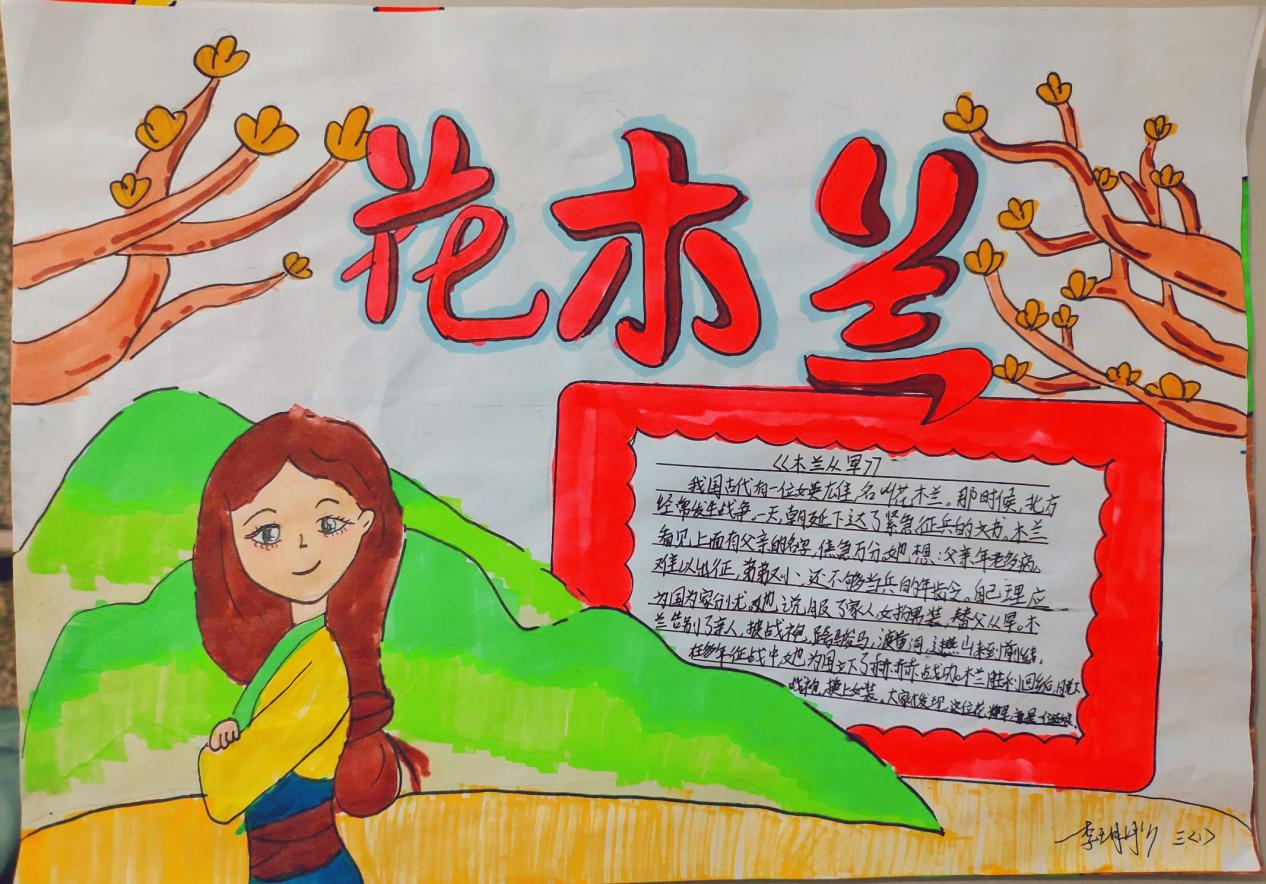 花木兰
《木兰从军》
我国古代有一位女英雄,名叫花木兰。那时候,北方
经常发生战争。一天,朝廷下达了紧急征兵的文书。木兰
看见上面有父亲的名字,焦急万分她想:父亲年老多病,
难以出征,弟弟又小,还不够当兵的年龄。自己理应
为国为家分忧她说服了家人,女扮男装,替父从军。木
兰告别了亲人,披战袍,骑骏马,渡黄河,过燕山来到前线。
在多年征战中,她为国立下了赫赫战功。木兰胜利回给,脱
战袍,换上女装。大家才发现,这位花
三<1>